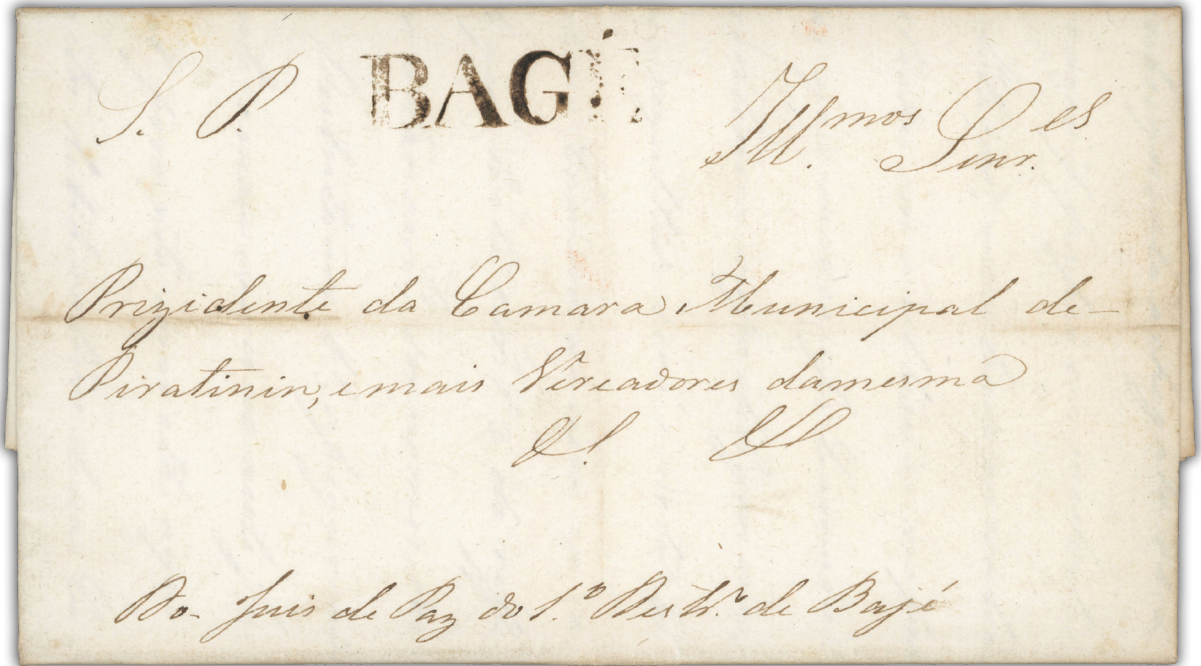 S. P. BAGÉ Ill.mos Senr.es
Prizidente da Camara Municipal de-
Piratinin, e mais Vereadores damesma
&. &
Do- Juis de Paz do 1.º Destr.º de Bajé